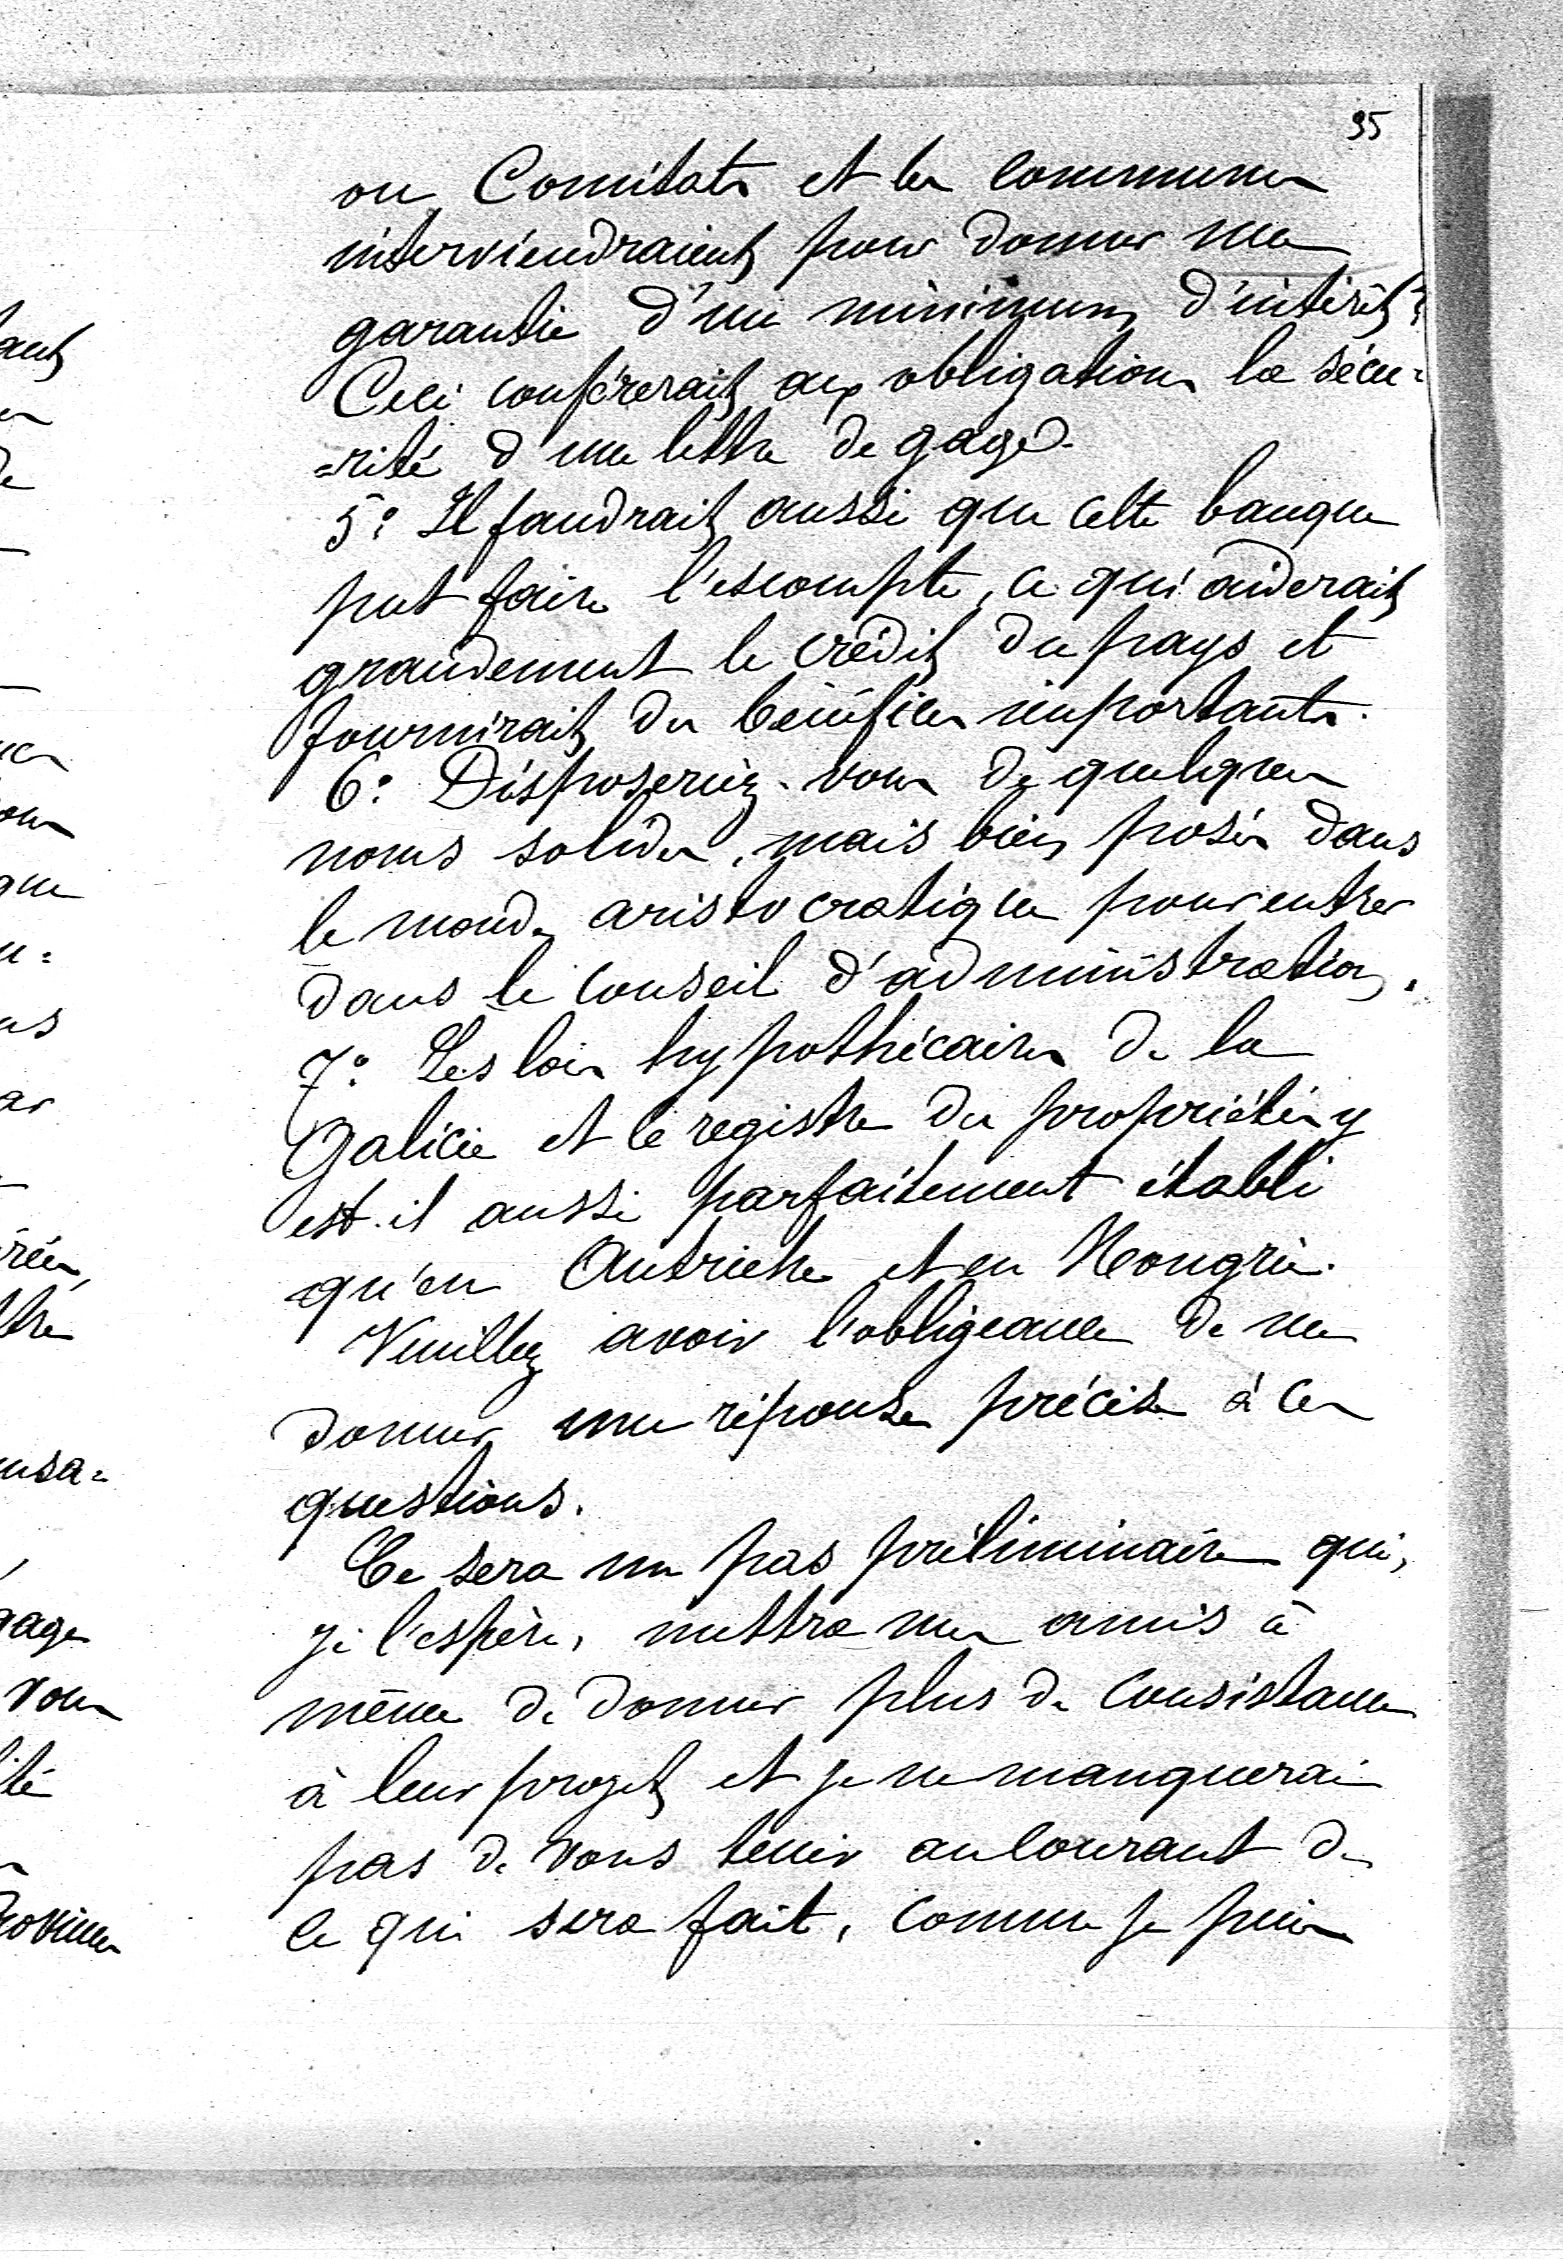 95
ou Comitats et les communes
interviendraient pour donner une
garantie d'un minimum d'intérêt?
Ceci conférerait aux obligations la sécu=
=rité d'une lettre de gage.
5° Il faudrait aussi que cette banque
put faire l'escompte, ce qui aiderait
grandement le crédit du pays et
fournirait des bénéfices importants.
6° Disposeriez-vous de quelques
noms solides, mais bien posés dans
le monde aristocratique pour entrer
dans le conseil d'administration.
7° Les lois hypothécaires de la
Galicie et le registre des propriétés y
est-il aussi parfaitement établi
qu'en Autriche et en Hongrie.
Veuillez avoir l'obligeance de me
donner une réponse précise à ces
questions.
Ce sera un pas préliminaire qui,
je l'espère, mettra mes amis à
même de donner plus de consistance
à leur projet et je ne manquerai
pas de vous tenir au courant de
ce qui sera fait, comme je puis